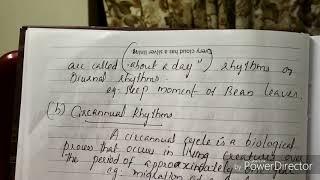 Every cloud has a silver lining
are called ("about a day") rhythms or
Diurnal rhythms.
eg: sleep moment of Bean leaves.
(b) Circannual Rhythms
A circannual cycle is a biological
process that occurs in living creatures over
the period of approximately
eg: migration of
by PowerDirector